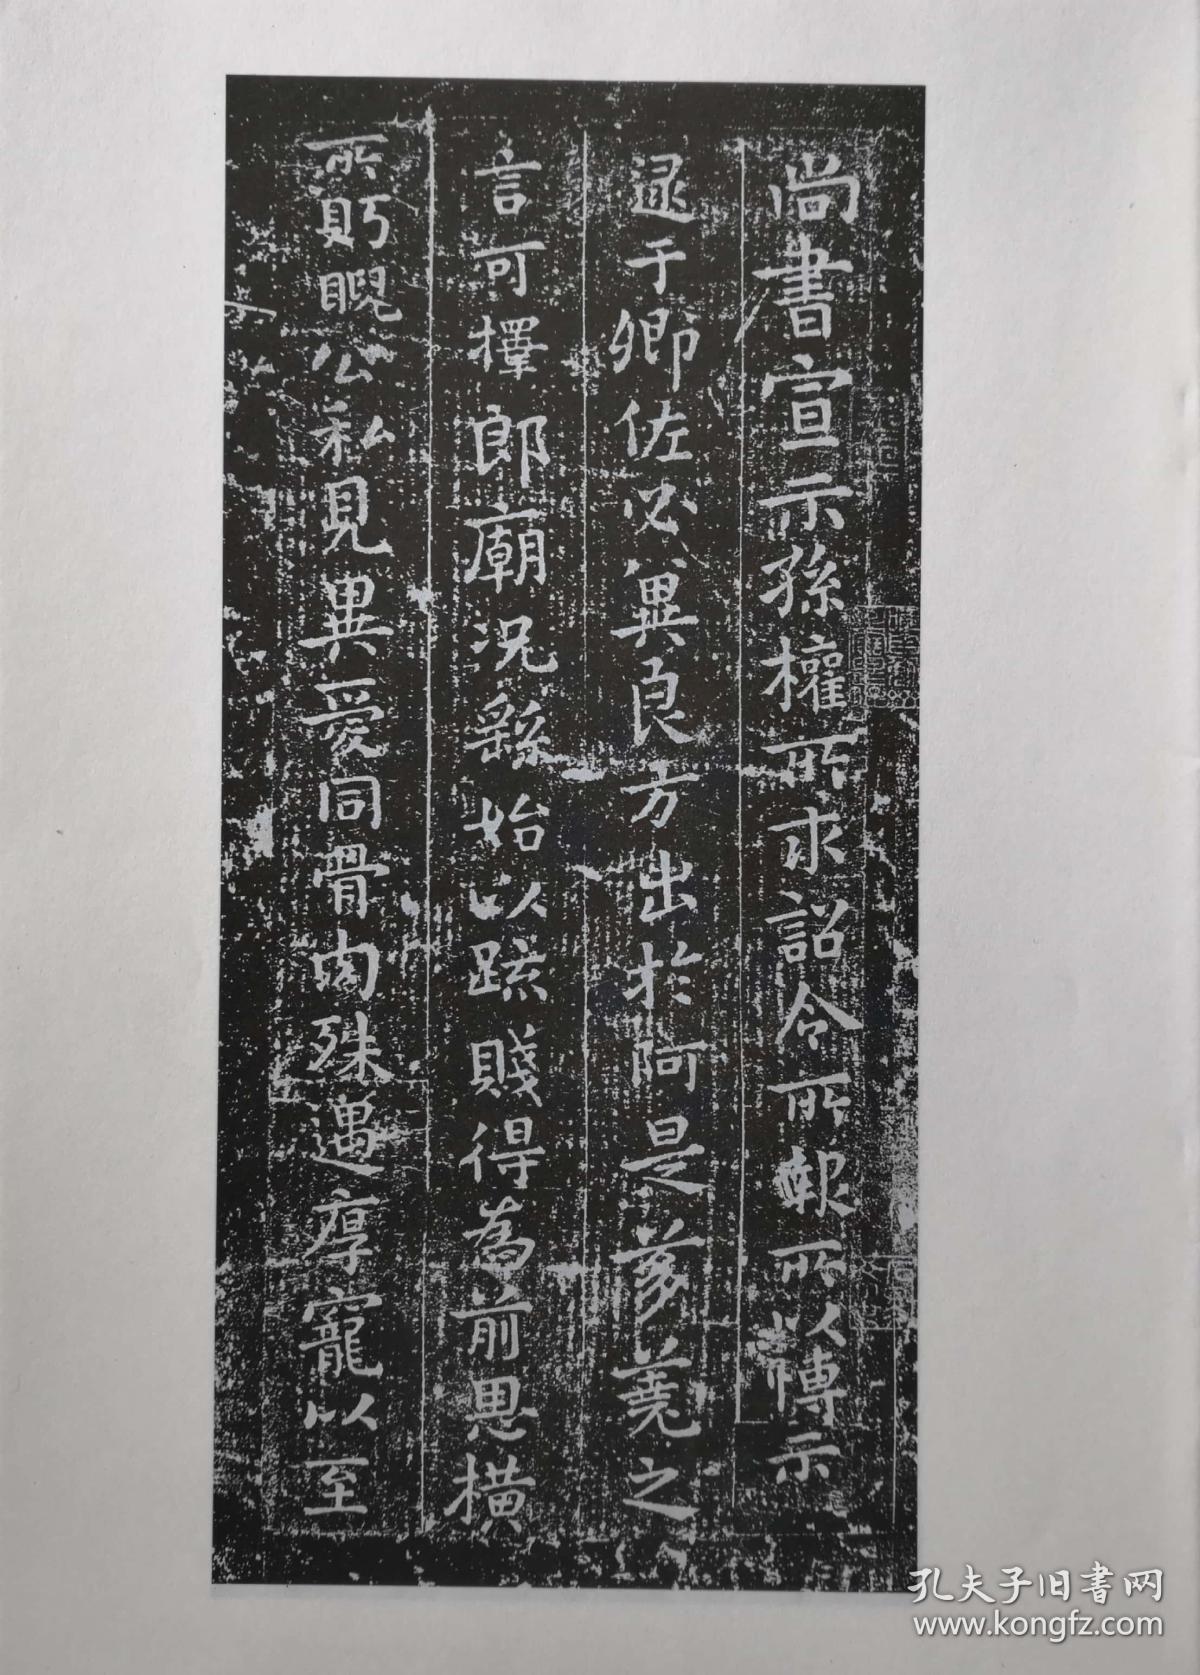 尚書宣示孫權所求詔令所報所以博示
逮于卿佐必冀良方出於阿是芻蕘之
言可擇郎廟況繇始以疏賤得為前恩橫
所眄睨公私見異愛同骨肉殊遇厚寵以至
孔夫子旧书网
www.kongfz.com